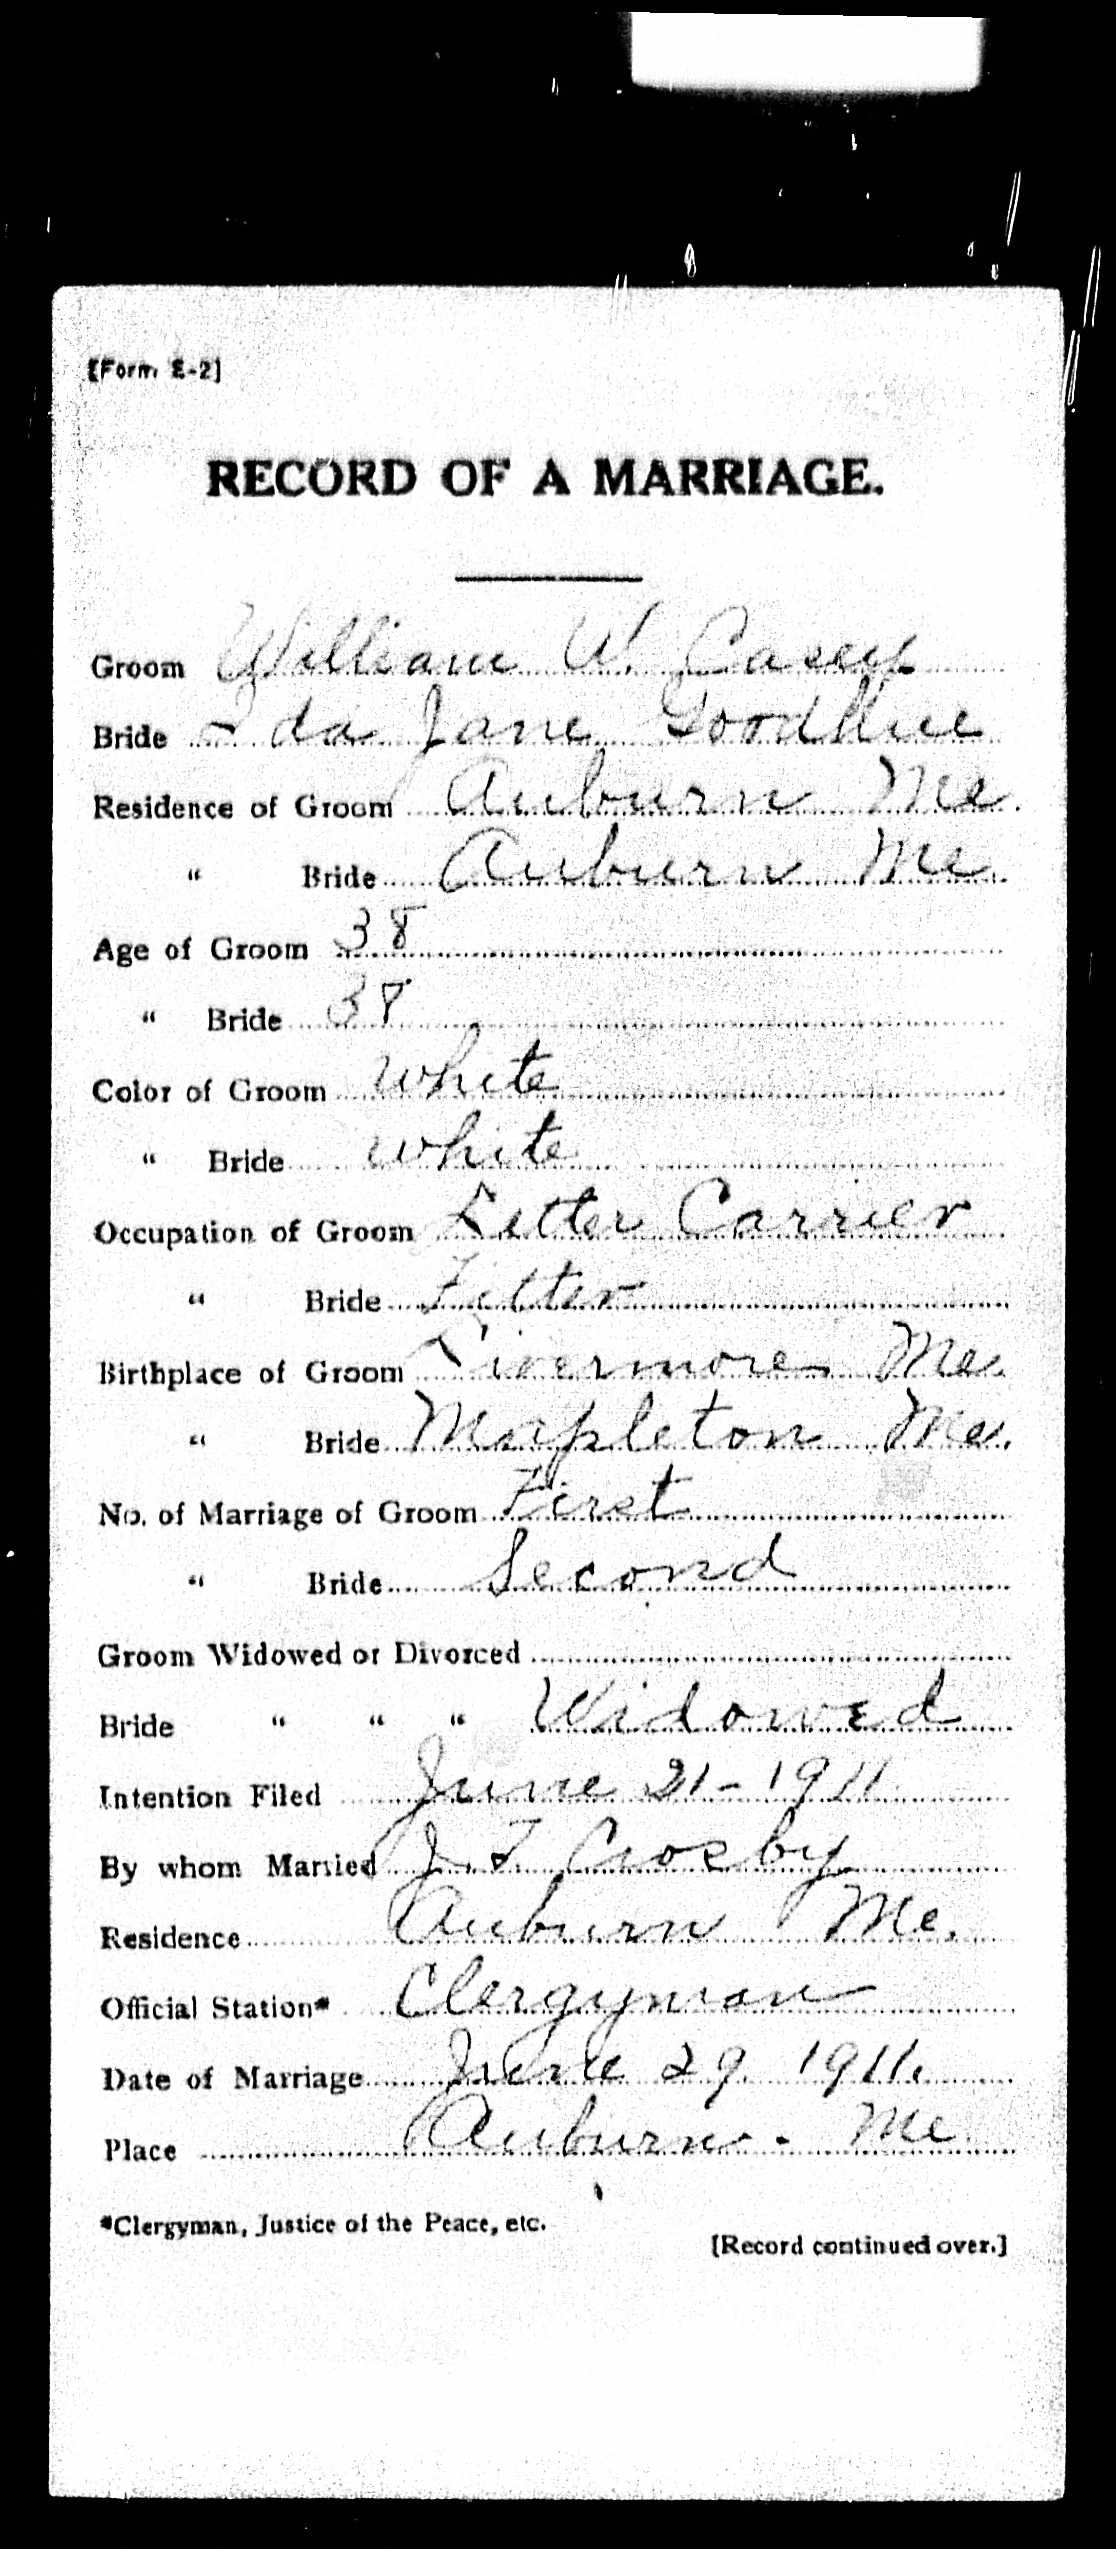 [Form E-2]
RECORD OF A MARRIAGE.
Groom William W. Casey
Bride Ida Jane Goodhue
Residence of Groom Auburn Me.
" Bride Auburn Me.
Age of Groom 38
" Bride 38
Color of Groom White
" Bride White
Occupation of Groom Letter Carrier
" Bride Fitter
Birthplace of Groom Livermore Me.
" Bride Mapleton Me.
No. of Marriage of Groom First
" Bride Second
Groom Widowed or Divorced
Bride " " " Widowed
Intention Filed June 21-1911
By whom Married J. F. Crosby
Residence Auburn Me.
Official Station* Clergyman
Date of Marriage June 29. 1911.
Place Auburn. Me
*Clergyman, Justice of the Peace, etc.
[Record continued over.]